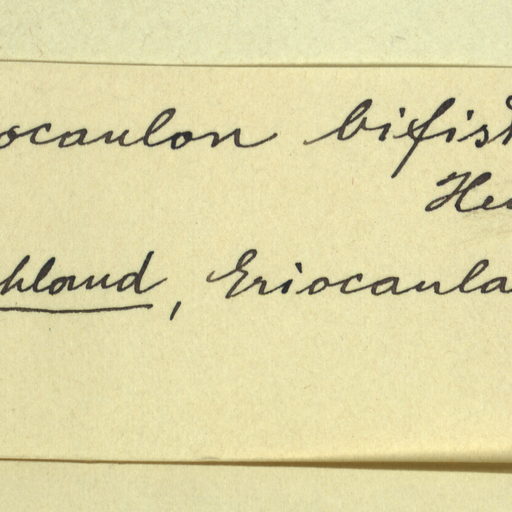 ocaulon bifist
Hei
hland, Eriocaula